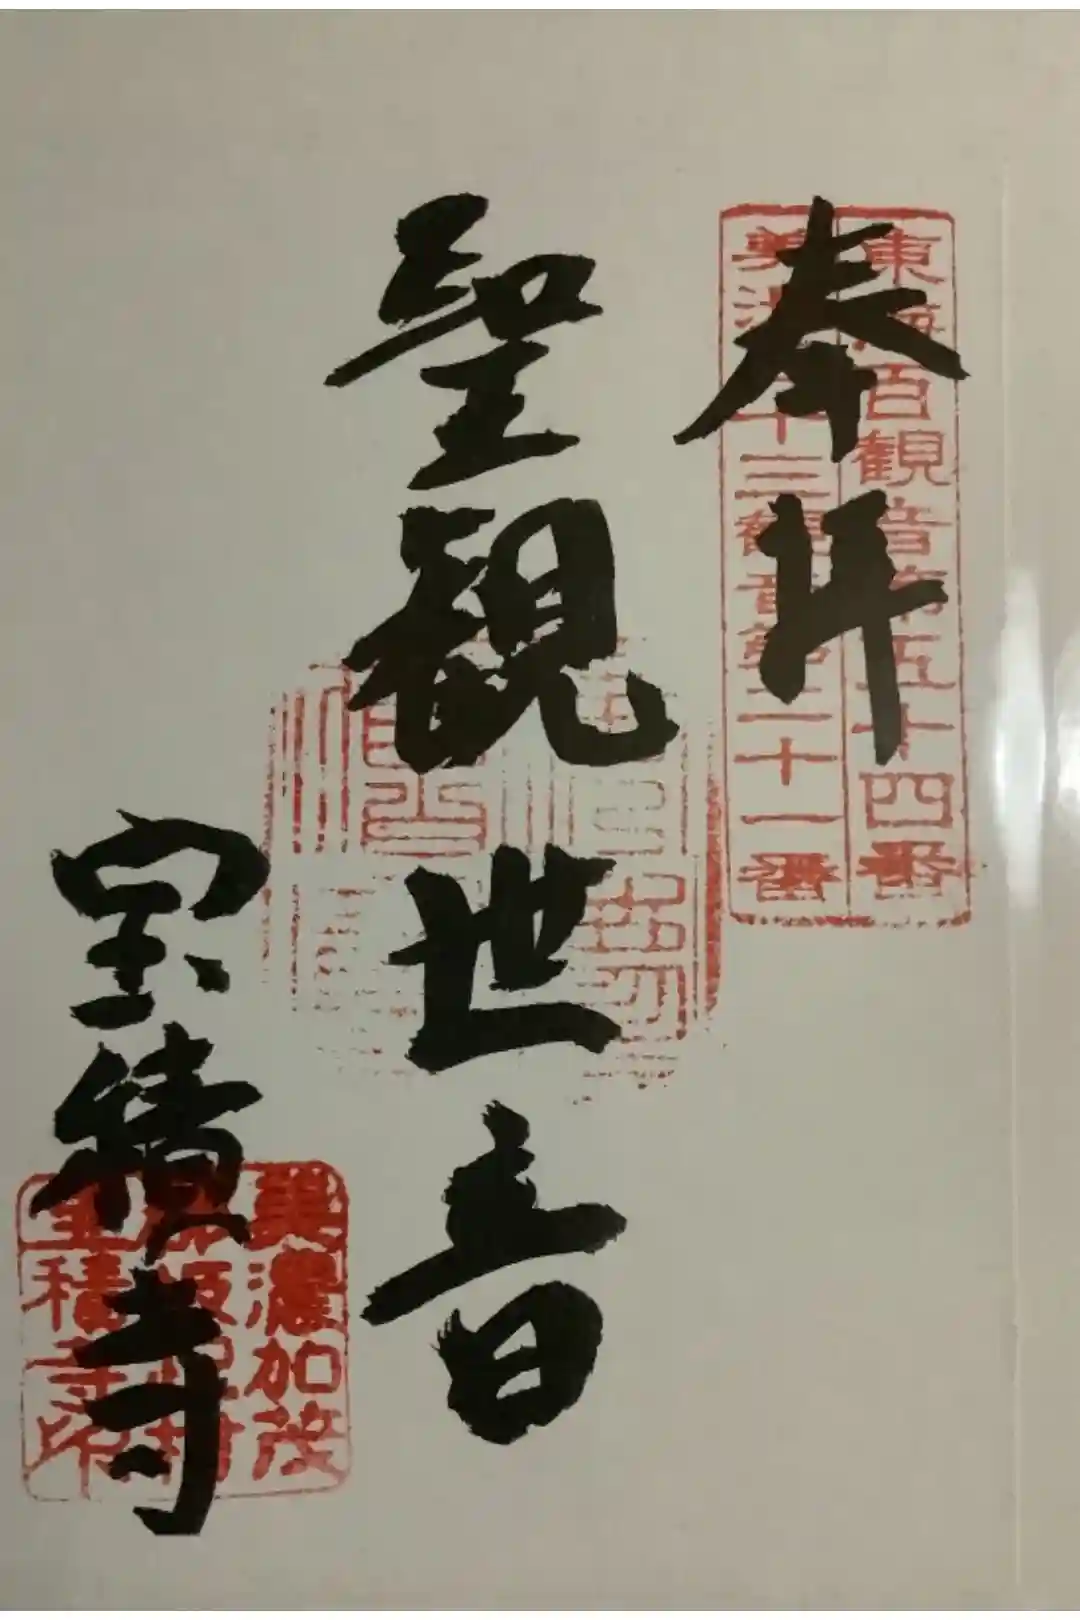 東海百観音第五十四番
美濃三十三観音第二十一番
奉拝
聖観世音
宝積寺
美濃加茂
坂祝村
宝積寺印